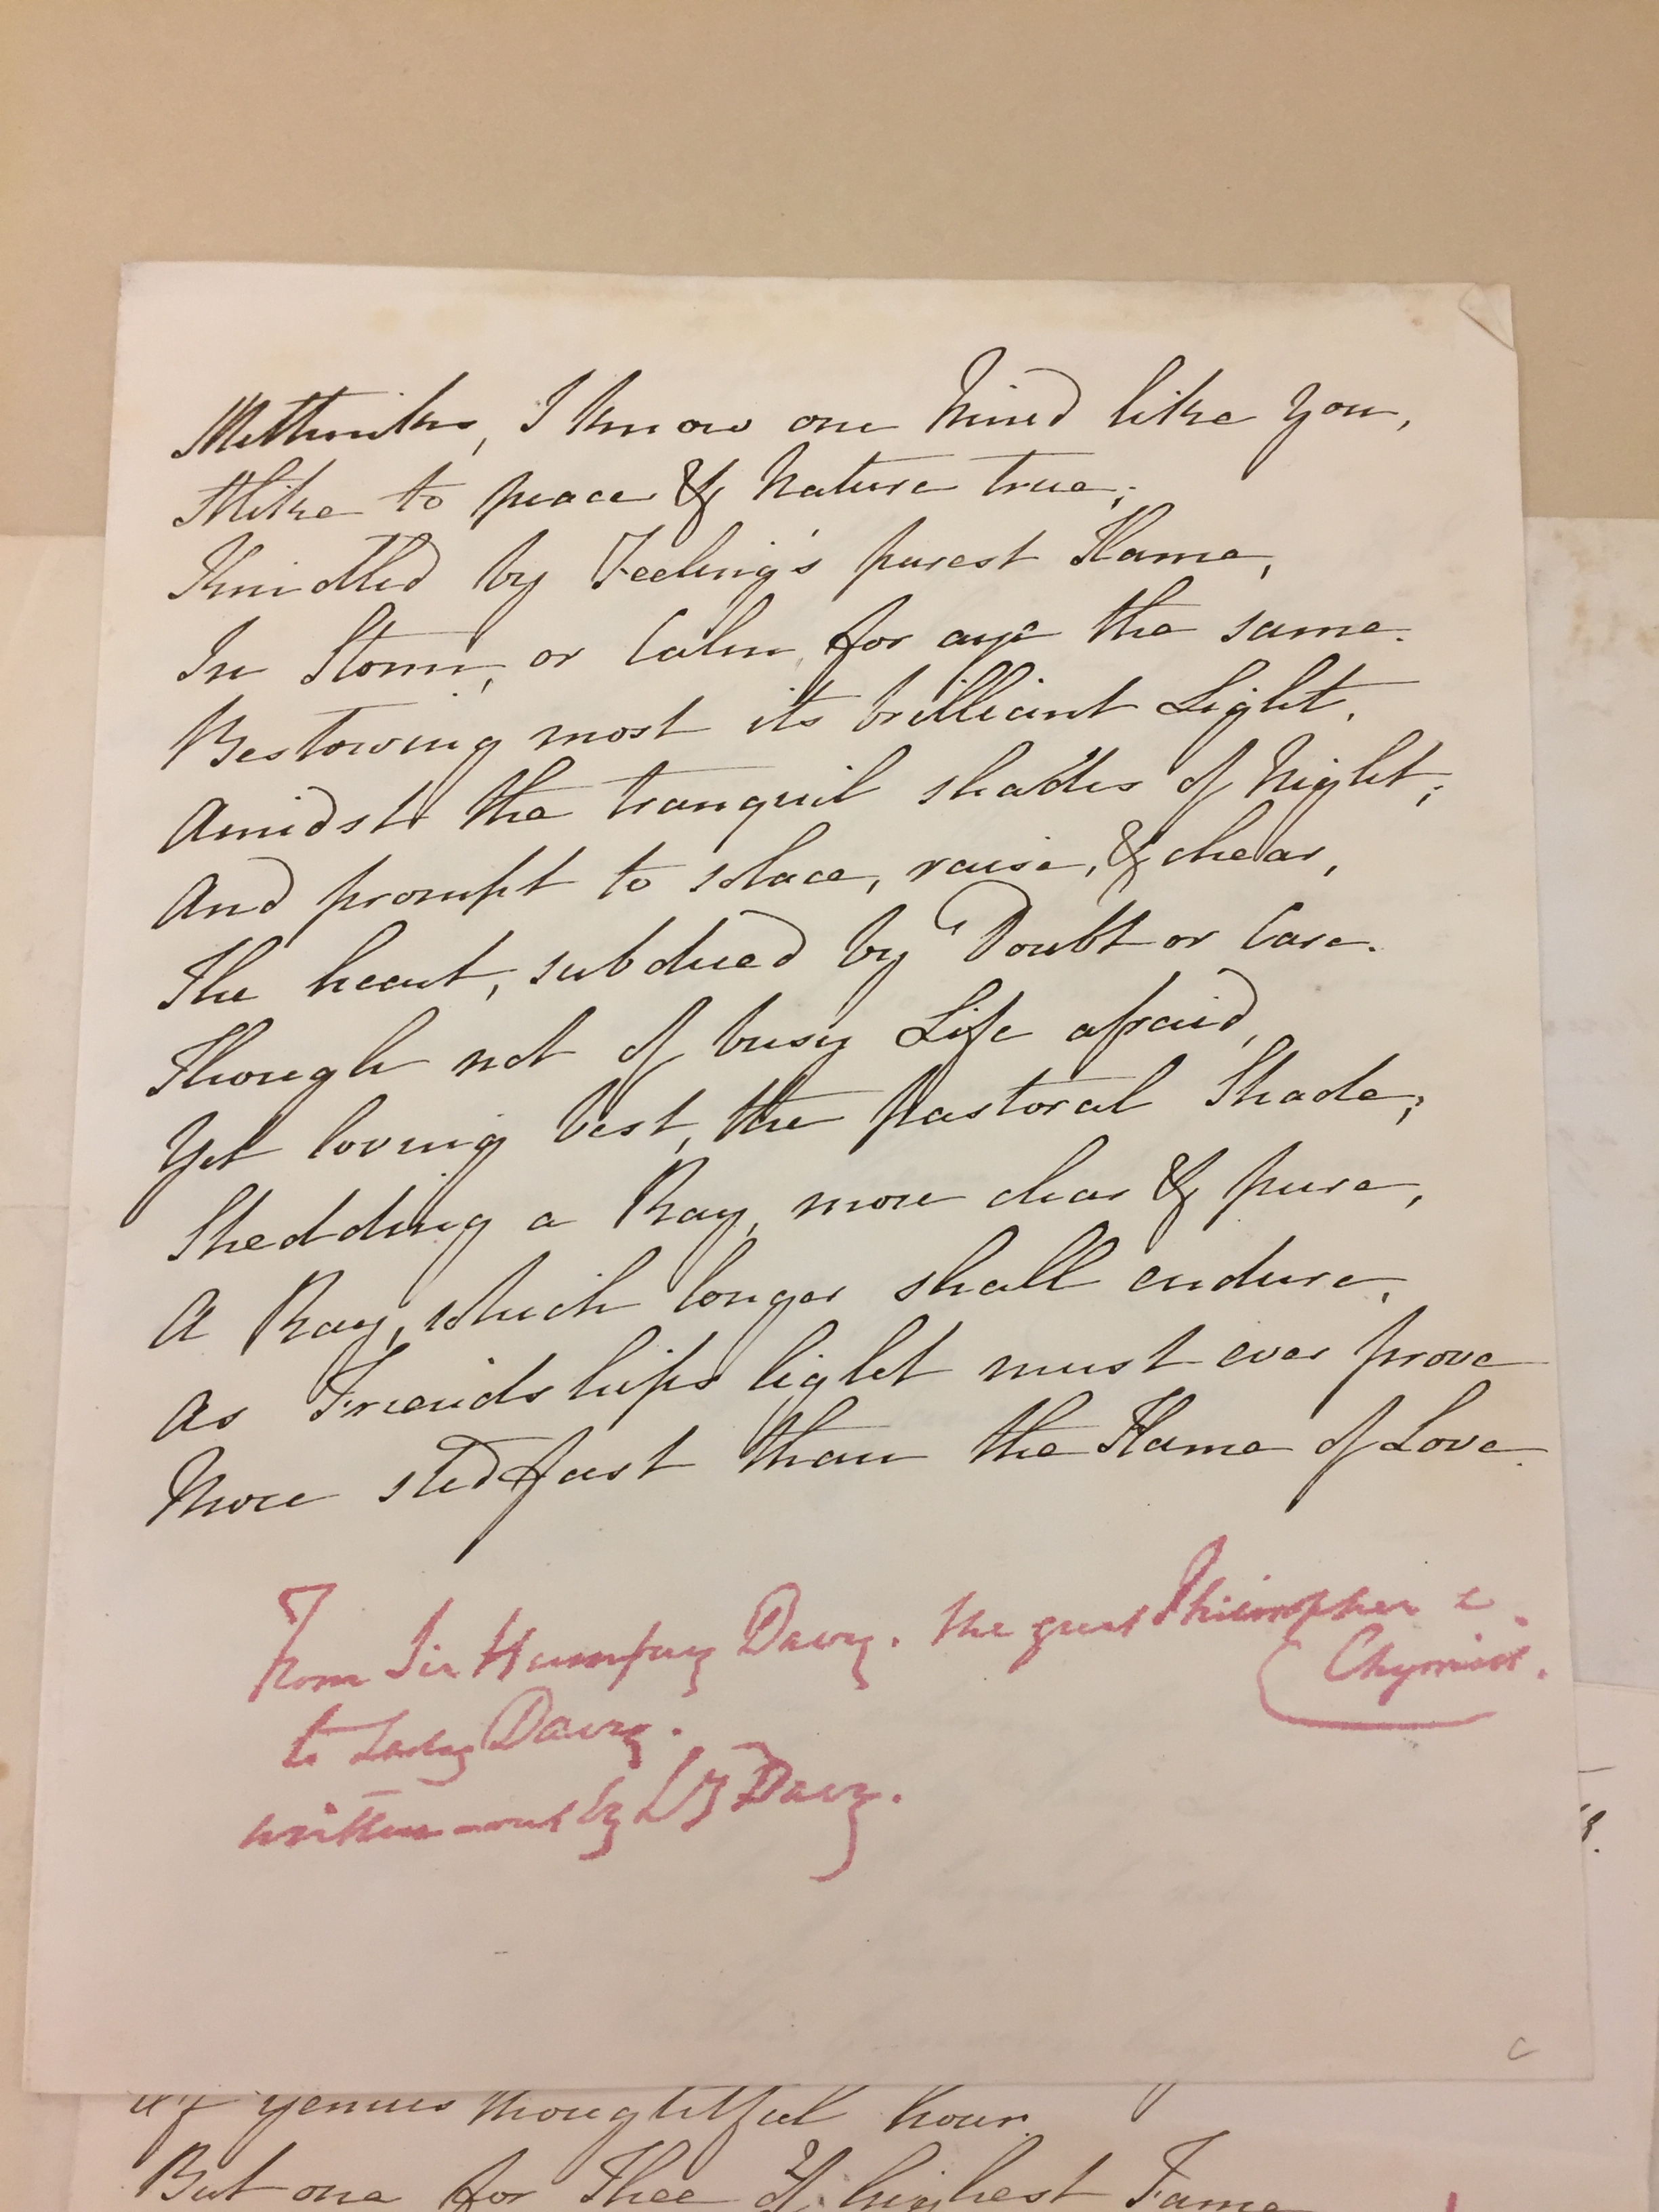 Methinks, I know one Mind like you,
Alike to peace & Nature true;
Kindled by Feeling's purest Flame,
In Storm, or Calm, for aye the same.
Bestowing most its brilliant Light,
Amidst the tranquil shades of Night;
And prompt to solace, raise, & chear,
The heart, subdued by Doubt or Care.
Though not of busy Life afraid,
Yet loving best, the Pastoral Shade;
Shedding a Ray, more clear & pure,
A Ray, which longer shall endure,
As Friendships light must ever prove
More stedfast than the Flame of Love.
From Sir Humfrey Davy. the great Philosopher &
Chymist.
to Lady Davy.
written out by Ly Davy.
C
of Genius thoughtful hour.
But one for Thee of highest Fame